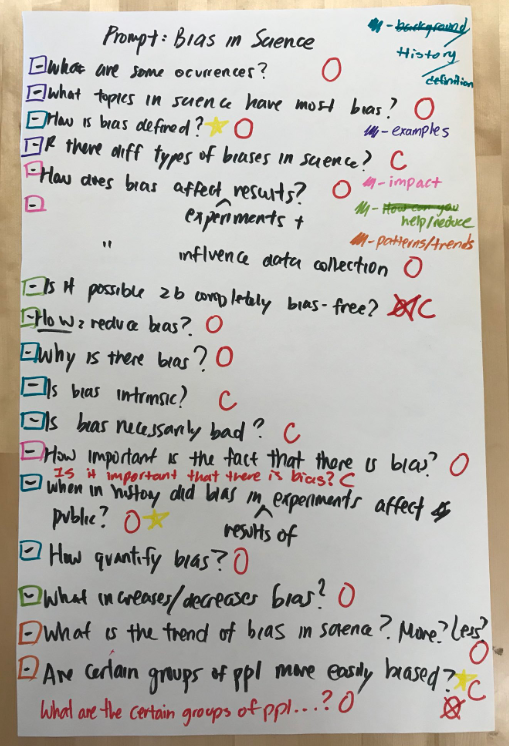 Prompt: Bias in Science
- background
History
/definition
- What are some ocurrences? O
- What topics in science have most bias? O
- How is bias defined? O
- examples
- R there diff types of biases in science? C
- How does bias affect results? O
- impact
- experiments +
- How can you
help/reduce
- patterns/trends
" influence data collection O
- Is it possible 2b completely bias-free? C
- How 2 reduce bias? O
- Why is there bias? O
- Is bias intrinsic? C
- Is bias necessarily bad? C
- How important is the fact that there is bias? O
Is it important that there is bias? C
- When in history did bias in experiments affect
public? O
results of
- How quantify bias? O
- What increases/decreases bias? O
- What is the trend of bias in science? More? Less?
O
- Are certain groups of ppl more easily biased?
C
What are the certain groups of ppl...? O